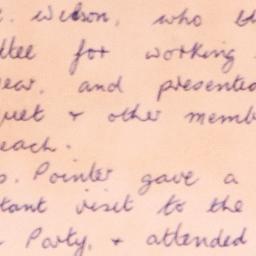 . Wilson, who
ttee for working
ear, and presente
uet + other memb
each.
s. Pointer gave a
tant visit to the
Party, + attended